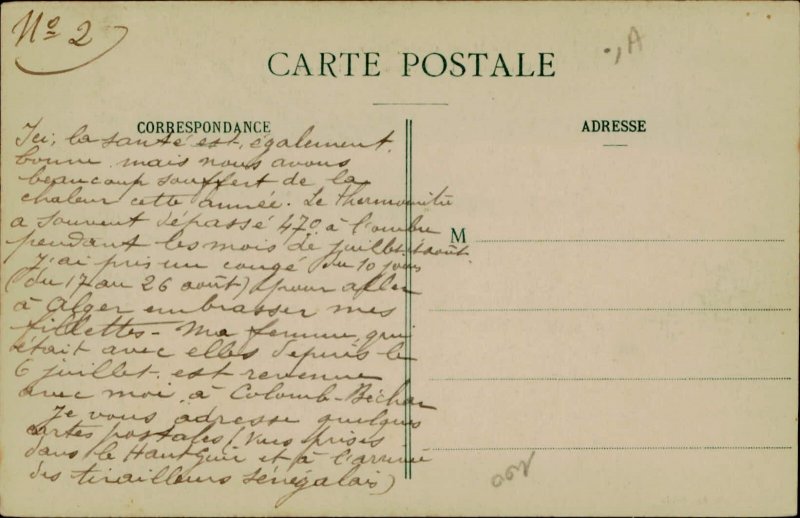 Nº 2
CARTE POSTALE
CORRESPONDANCE
ADRESSE
M
Ici, la santé est également
bonne mais nous avons
beaucoup souffert de la
chaleur cette année. Le thermomètre
a souvent dépassé 47º à l'ombre
pendant les mois de juillet & août.
J'ai pris un congé de 10 jours
(du 17 au 26 août) pour aller
à Alger embrasser mes
fillettes - Ma femme, qui
était avec elles depuis le
6 juillet, est revenue
avec moi à Colomb-Béchar
Je vous adresse quelques
cartes postales (vues prises
dans le Haut Guir et à l'arrivée
des tirailleurs sénégalais)